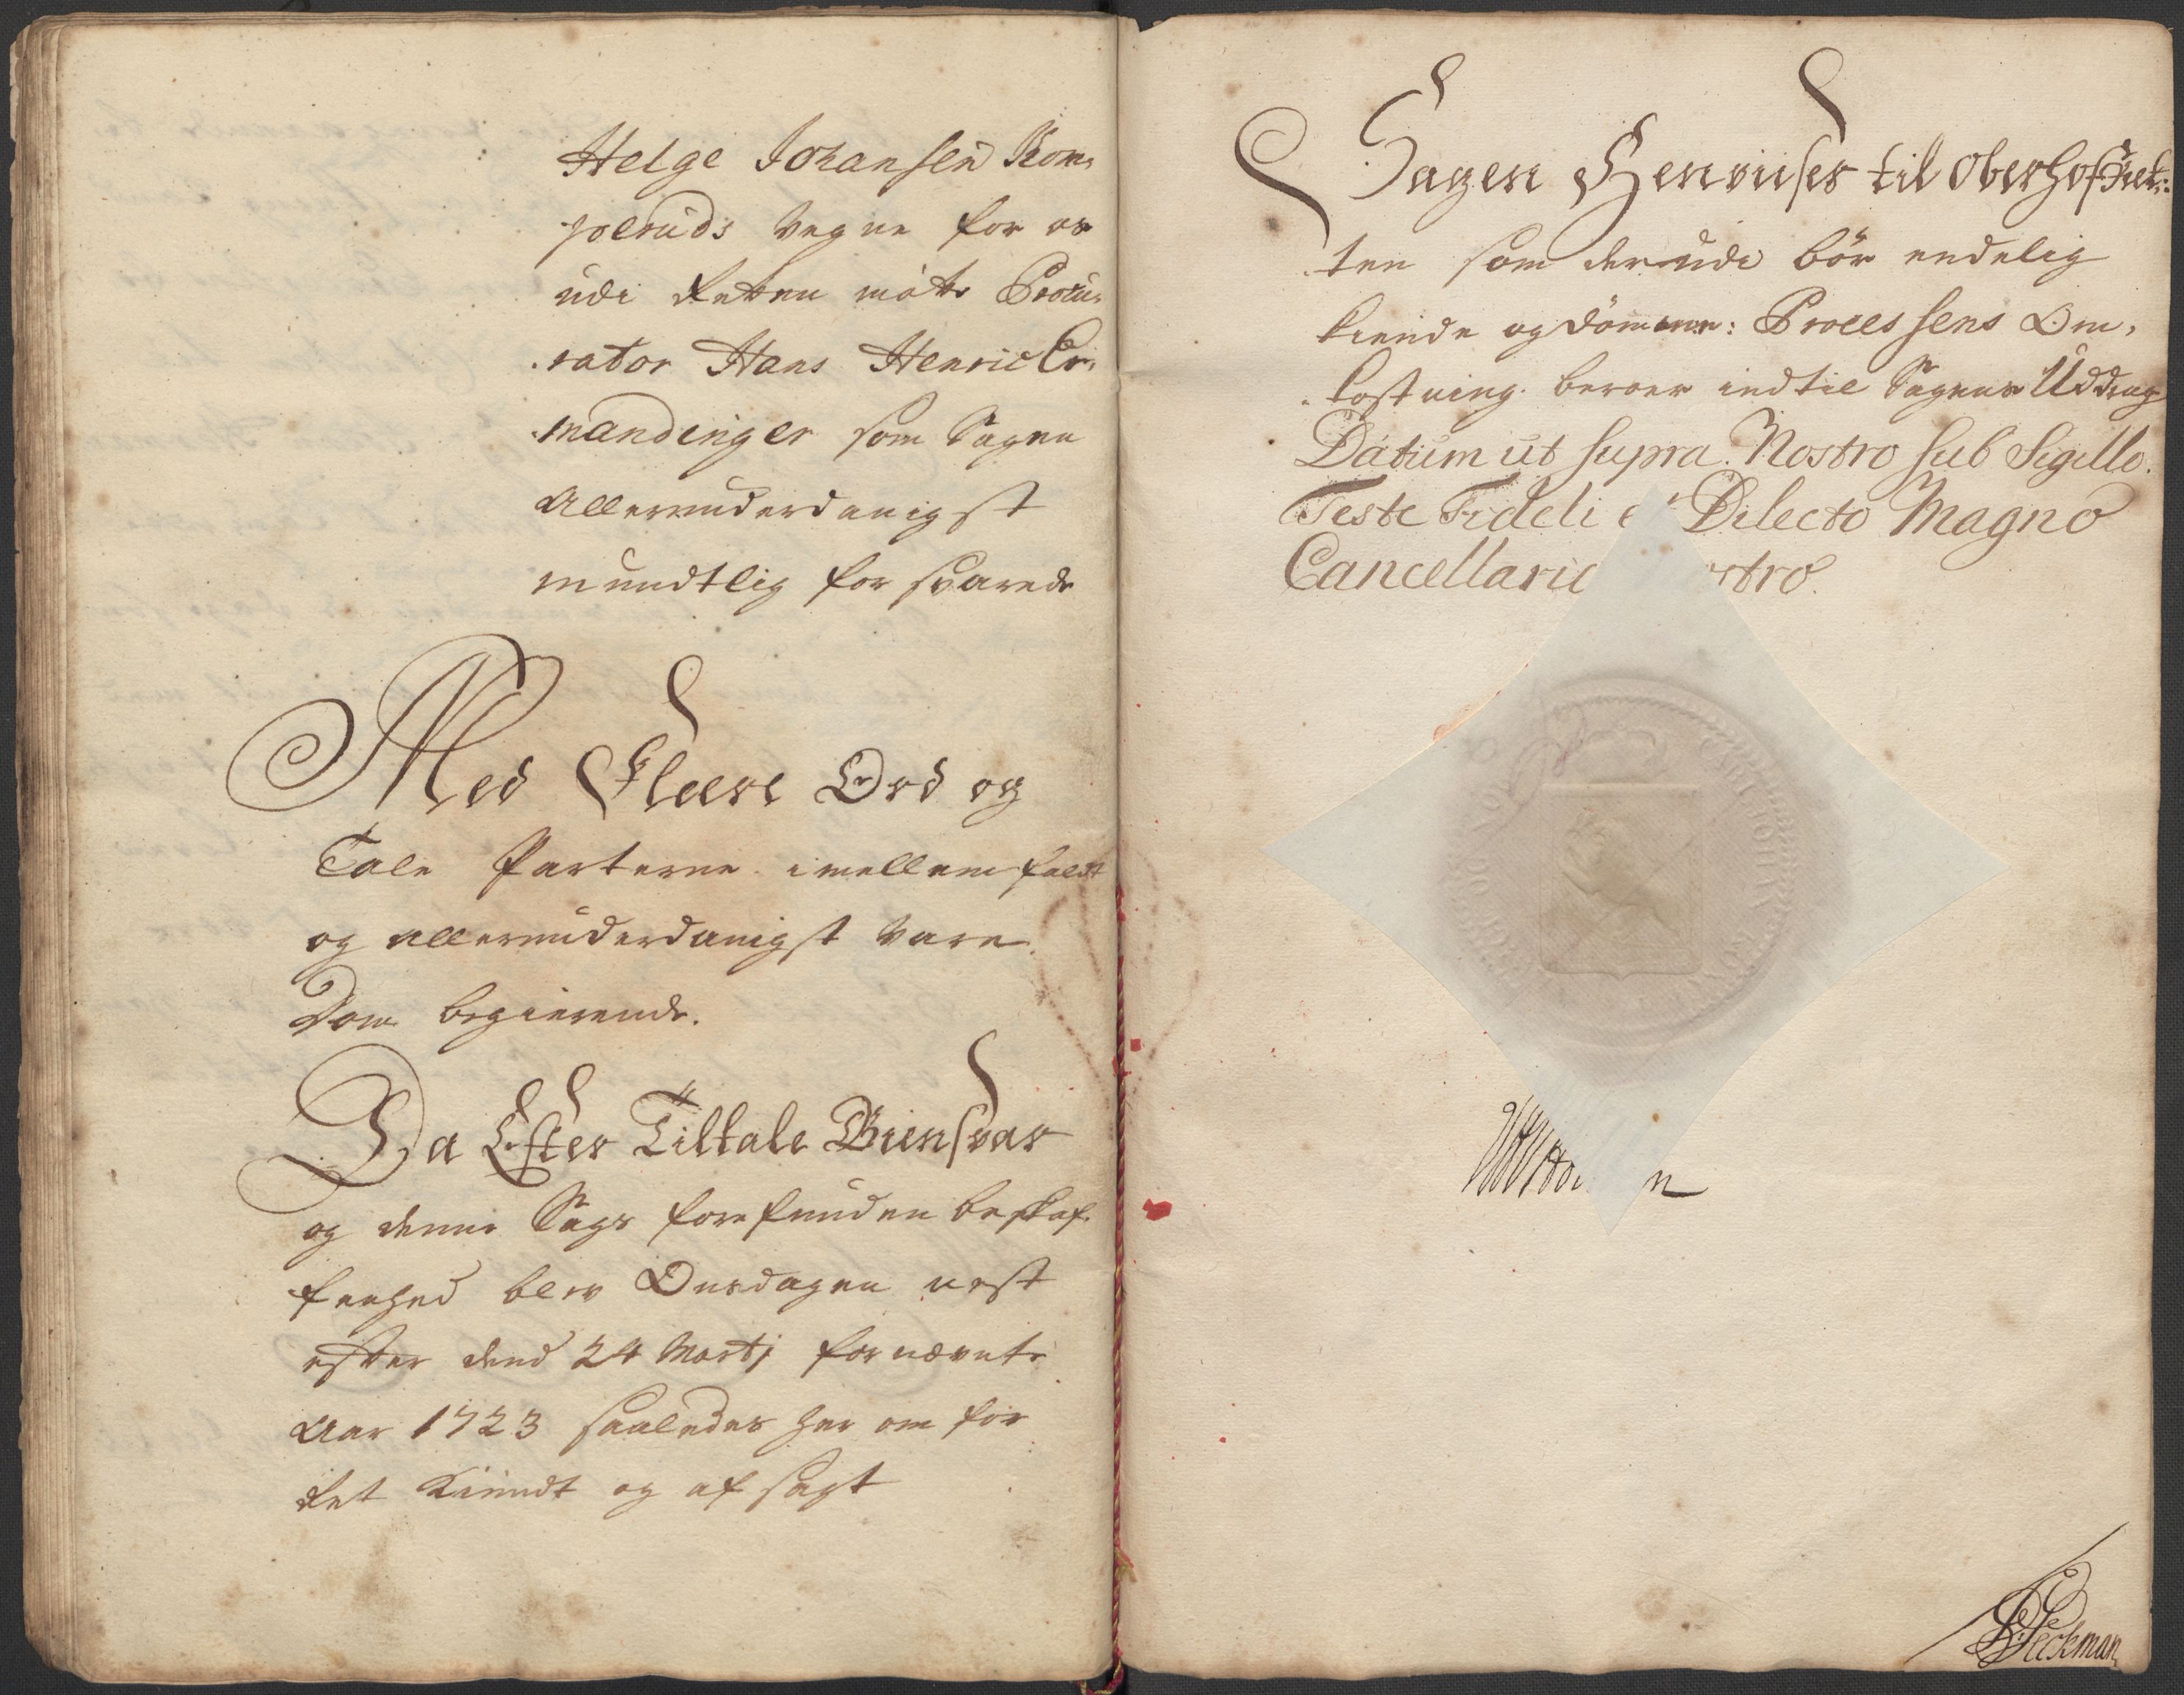 Helge Johansen Rom-
polruds vegne for os
udi Retten møtte Procu-
rator Hans Henric Er-
mandinger som Sagen
Allerunderdanigst
mundtlig forsvarede
Med Fleere Ord og
Tale Parterne imellem faldt
og allerunderdanigst vare
Dom begierende.
Da Efter Tiltale Giensvar
og denne Sags forefunden beskaf-
fenhed blev Onsdagen nest
efter dend 24 Martj fornævnte
Aar 1723 saaledes her om for
Ret Kiendt og afsagt
Sagen Henviises til OberhofRet:
ten som derudi bør endelig
kiende og dømme: Processens Om-
kostning beroer indtil Sagens Uddrag
Datum ut supra. Nostro sub Sigillo.
Teste Fideli et Dilecto Magno
Cancellario Nostro.